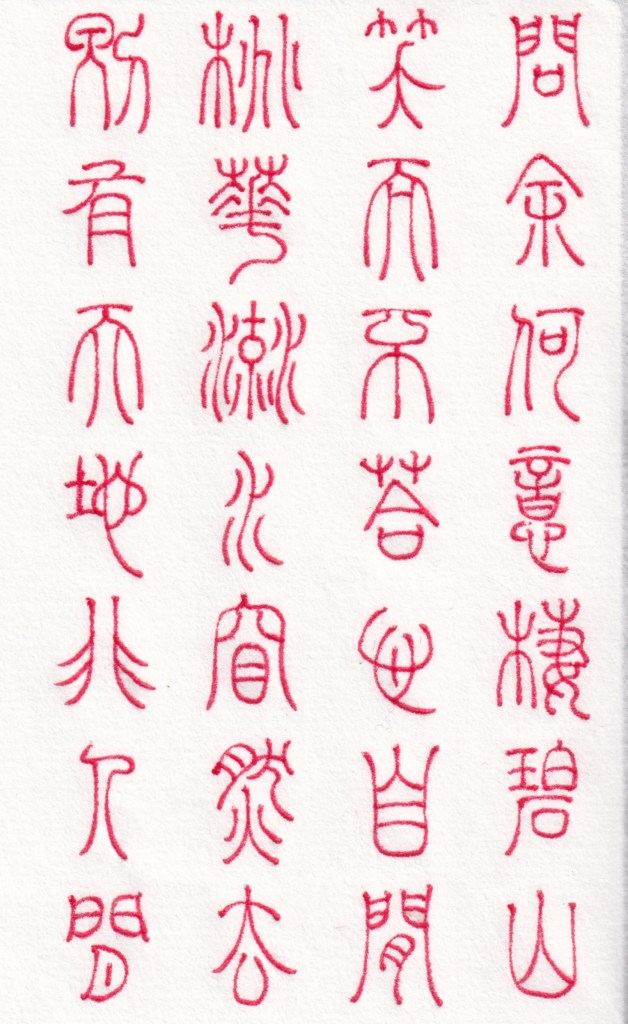 問余何意棲碧山
笑而不荅心自閒
桃華流水窅然去
別有天地非人間